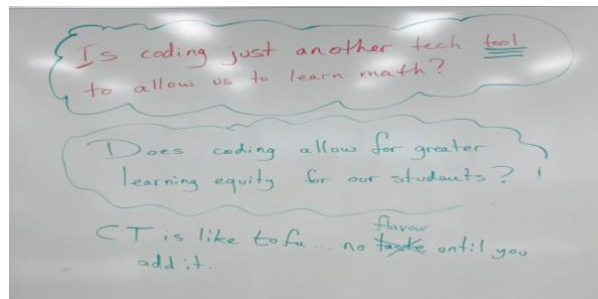 Is coding just another tech tool
to allow us to learn math?
Does coding allow for greater
learning equity for our students?
CT is like tofu... no taste flavour until you
add it.